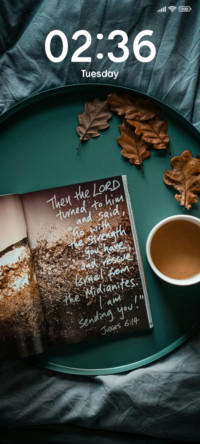 02:36
Tuesday
Then the LORD
turned to him
and said,
"Go with
the strength
you have
and rescue
Israel from
the Midianites.
I am
sending you!"
Judges 6:14